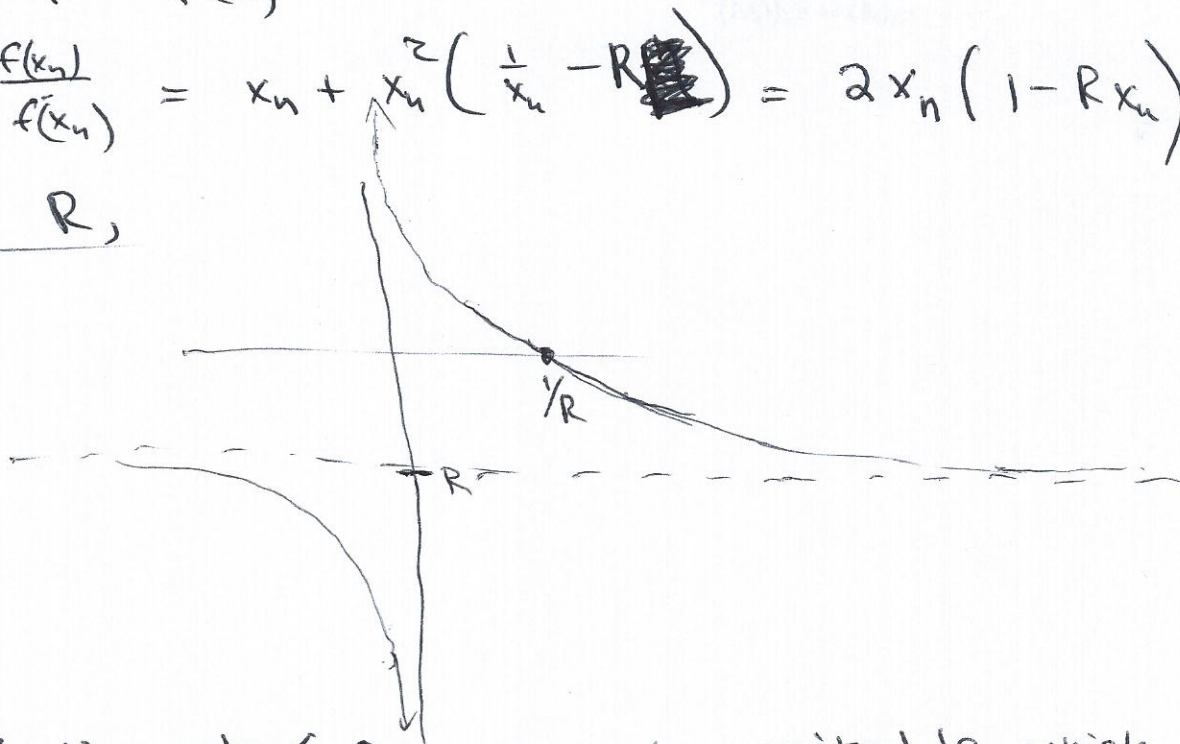 f(xₙ)/f'(xₙ) = xₙ + xₙ² ( 1/xₙ - R ) = 2xₙ ( 1 - Rxₙ )
R,
1/R
R